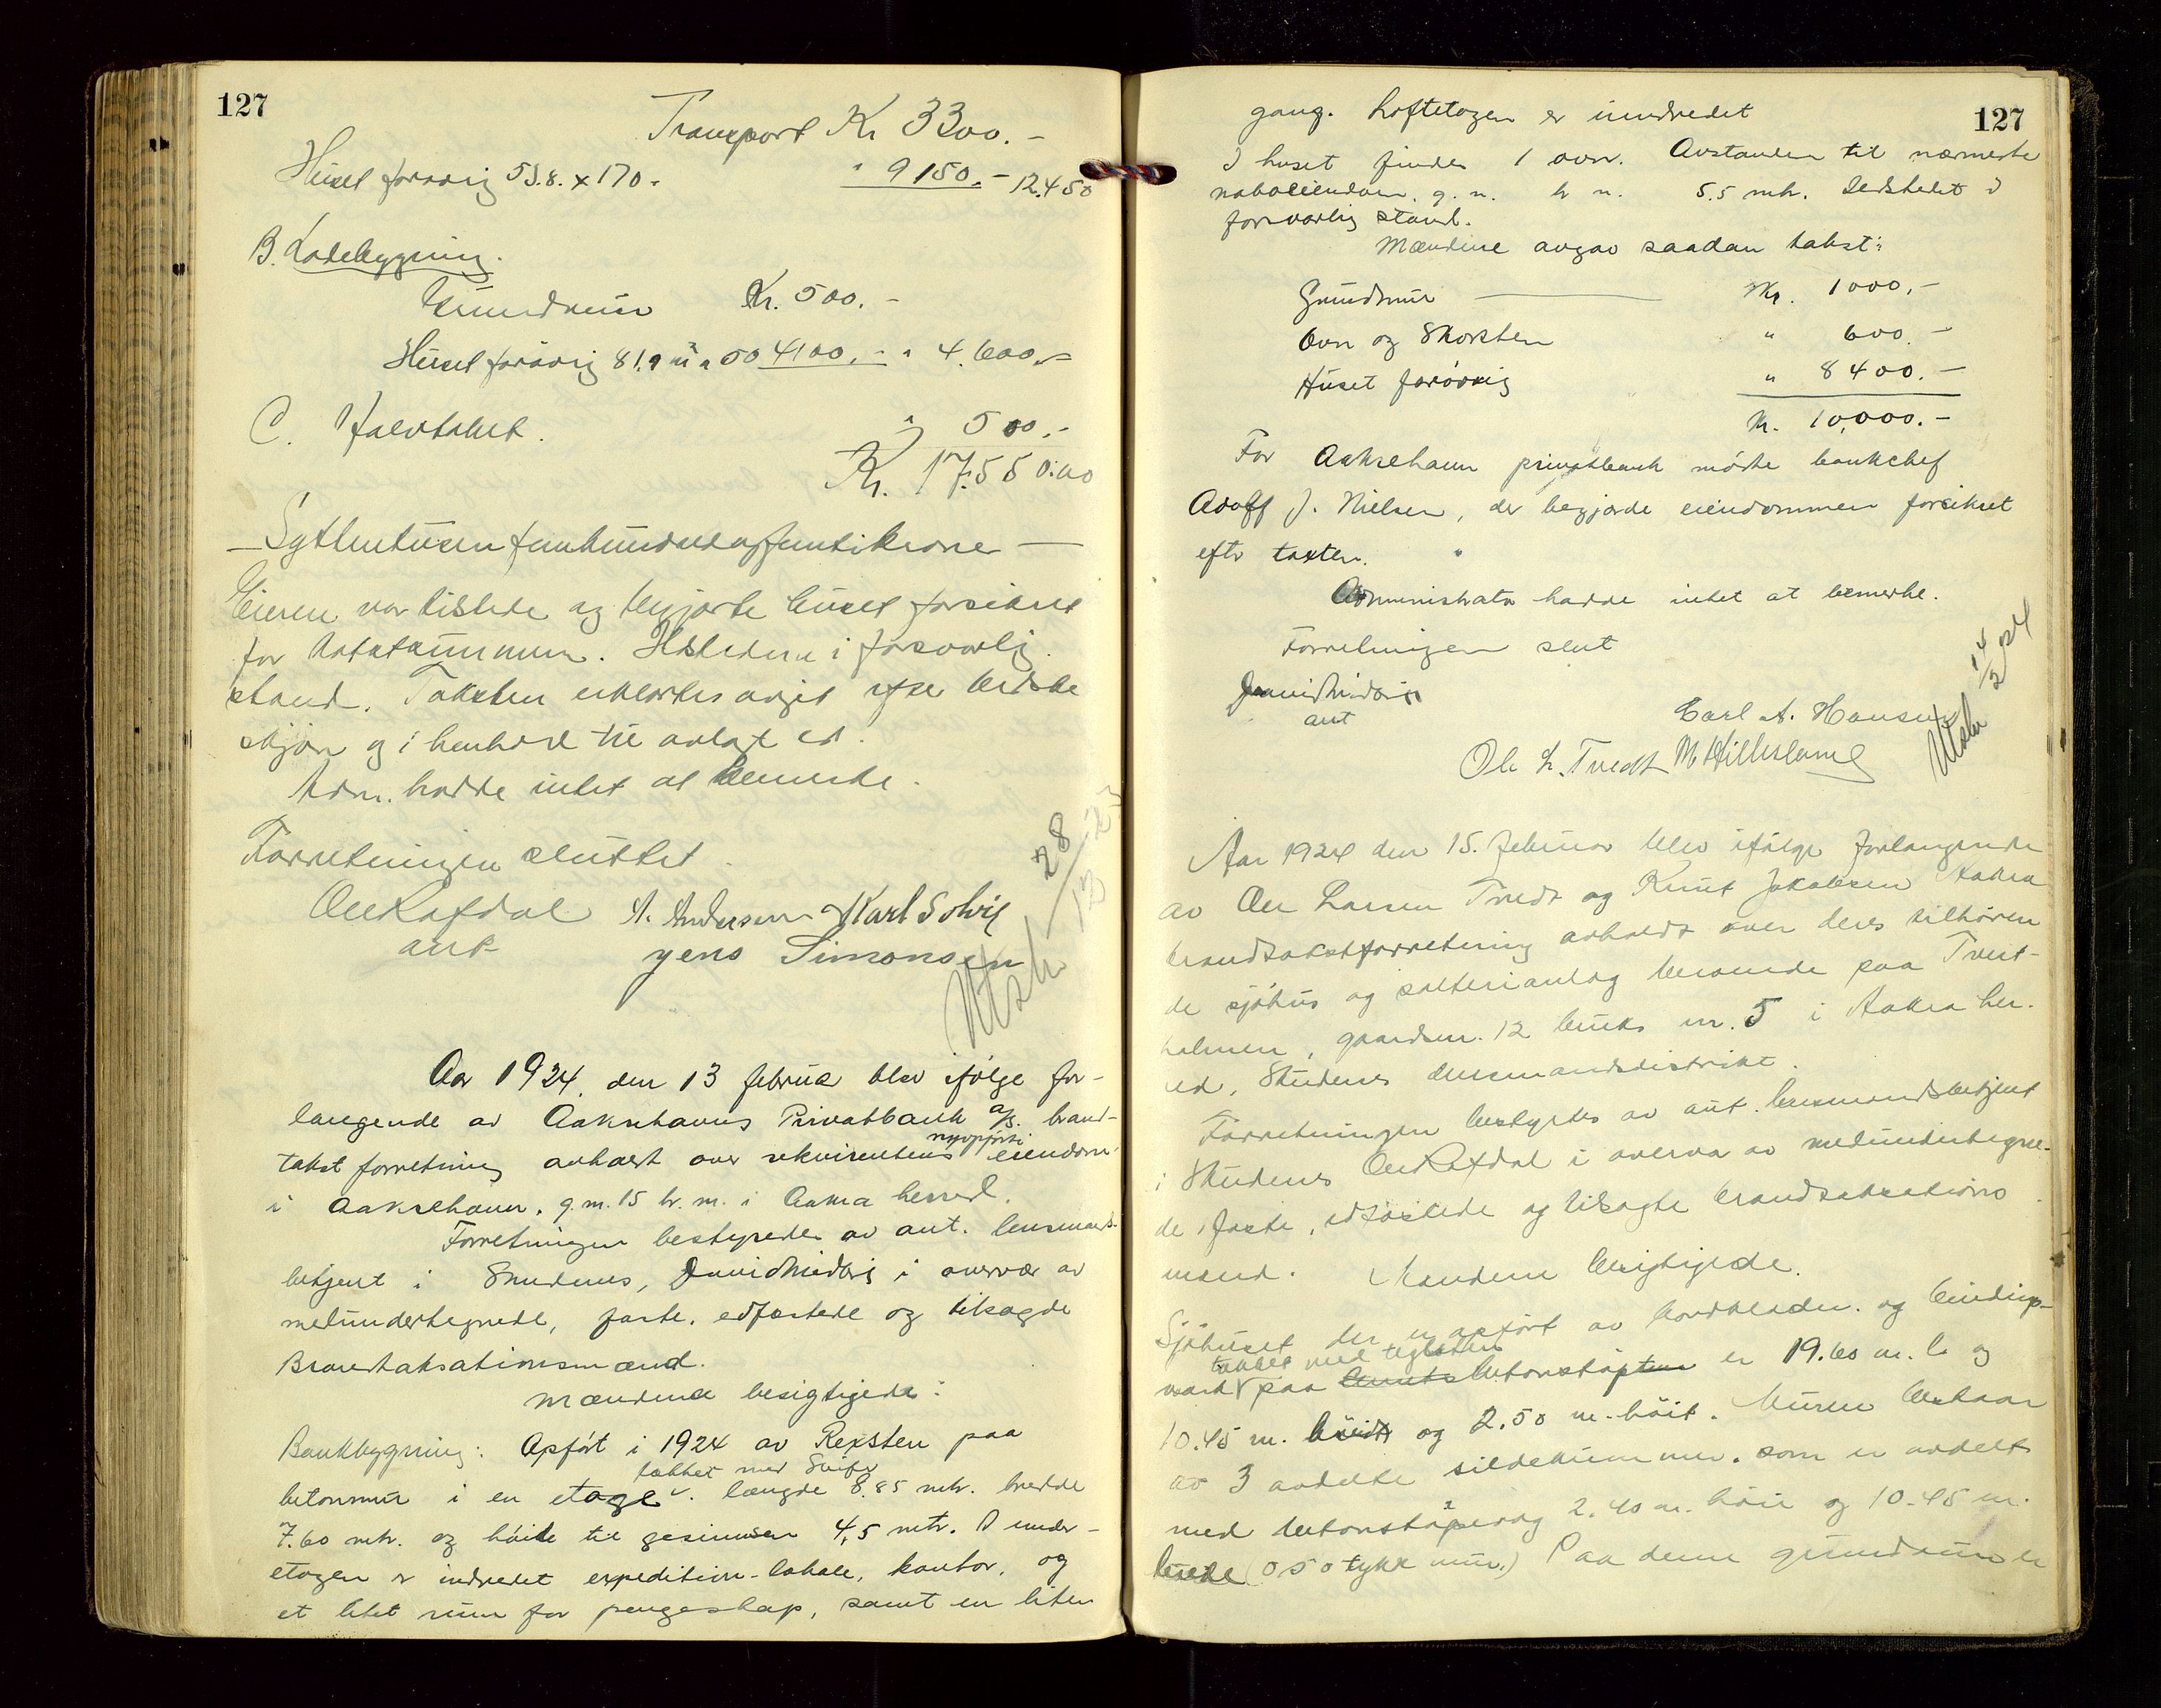 127
Transport Kr 3300.-
Huset forøvrig 53.8. x 170 - " 9150.- 12.450
B. Ladebygning.
Grundmur Kr. 500.-
Huset forøvrig 81,9 m² a 50 4100.- " 4.600.-
C. " 500.-
Kr. 17.550.00
- Sythentusen femhundredogfemtikroner -
Eieren var tilstede og begjærte huset forsikret
for takstsummen. Ildstedene i forsvarlig
stand. Taksten erklærtes avgit efter bedste
skjøn og i henhold til avlagt ed.
Adm. hadde intet at bemerke.
Forretningen sluttet.
Ole Rafdal A. Andersen Karl Solvig
aut Jens Simonsen
Utsk 28/12 23
Aar 1924 den 13 februar blev ifølge for-
langende av Aakrehavns Privatbank a/s. brand-
takst forretning avholdt over rekvirentens nyopførte eiendom
i Aakrehavn, g.n. 15 br. n. i Aakra herred.
Forretningen bestyredes av aut. lensmands-
betjent i Skudenes, i overvær av
medundertegnede, faste, edfæstede og tilsagde
Brandtaksationsmænd.
Mændene besigtigede:
Bankbygning: Opført i 1924 av Rexsten paa
betonmur i en etage takket med Skifer. længde 8.85 mtr. bredde
7.60 mtr. og høide til gesimsen 4,5 mtr. I under-
etagen er indredet expedition-lokale, kontor, og
et litet rum for pengeskap, samt en liten
127
gang. Loftetagen er innredet
I huset findes 1 ovn. Avstanden til nærmeste
naboeiendom, g. n. br n. 5.5 mtr. Ildstedet i
forsvarlig stand.
Mændene avgav saadan takst:
Grundmur Kr. 1000.-
Ovn og Skorsten " 600.-
Huset forøvrig " 8400.-
Kr. 10,000.-
For Aakrehavn privatbank møtte bankchef
Adolf J. Nielsen, der begjærde eiendommen forsikret
efter taxten.
Administrator hadde intet at bemerke.
Forretningen slut
aut Carl A. Hansen
Ole L. Tvedt M Hillesland
Utsk 14/2 24
Aar 1924 den 15. februar blev ifølge forlangende
av Ole Larsen Tvedt og Knut Jakobsen Aakra
brandtakstforretning avholdt over deres tilhøren
de sjøhus og salterianlæg beroende paa Tveit-
holmen, gaardsn. 12 bruks nr. 5 i Aakra her-
red, Skudenes lensmandsdistrikt.
Forretningen bestyrtes av aut. lensmandsbetjent
i Skudenes Ole Rafdal i overvær av medundertegne-
de faste, edfæstede og tilsagte brandtakstions
mænd. Mændene besigtigede.
Sjøhuset der er opført av bordklædn. og bindings-
verk takket med teglsten paa betonstøpten er 19.60 m. l. og
10.45 m. bredt og 2.50 m. høit. Muren bestaar
av 3 avdelte sildekummer, som er avdelt
med betonstøpning 2.40 m. høie og 10.45 m.
brede (0.50 tykk mur.) Paa denne grundmur er